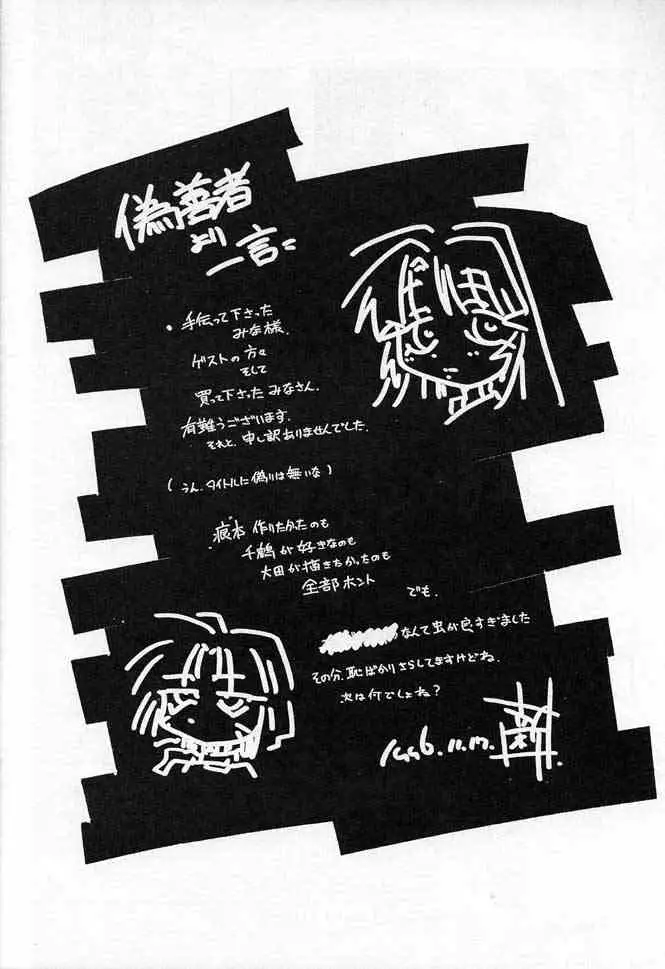 偽善者
より
一言に
・手伝って下さった
みな様.
ゲストの方々
そして
買って下さったみなさん.
有難うございます.
それと、申し訳ありませんでした.
(うん、タイトルに偽りは無いな)
痕本 作りたかったのも
千鶴が好きなのも
太田が描きたかったのも
全部ホント
でも、
なんて虫が良すぎました
その分、恥ばかりさらしてますけどね.
次は何でしょね?
1996.11.17.